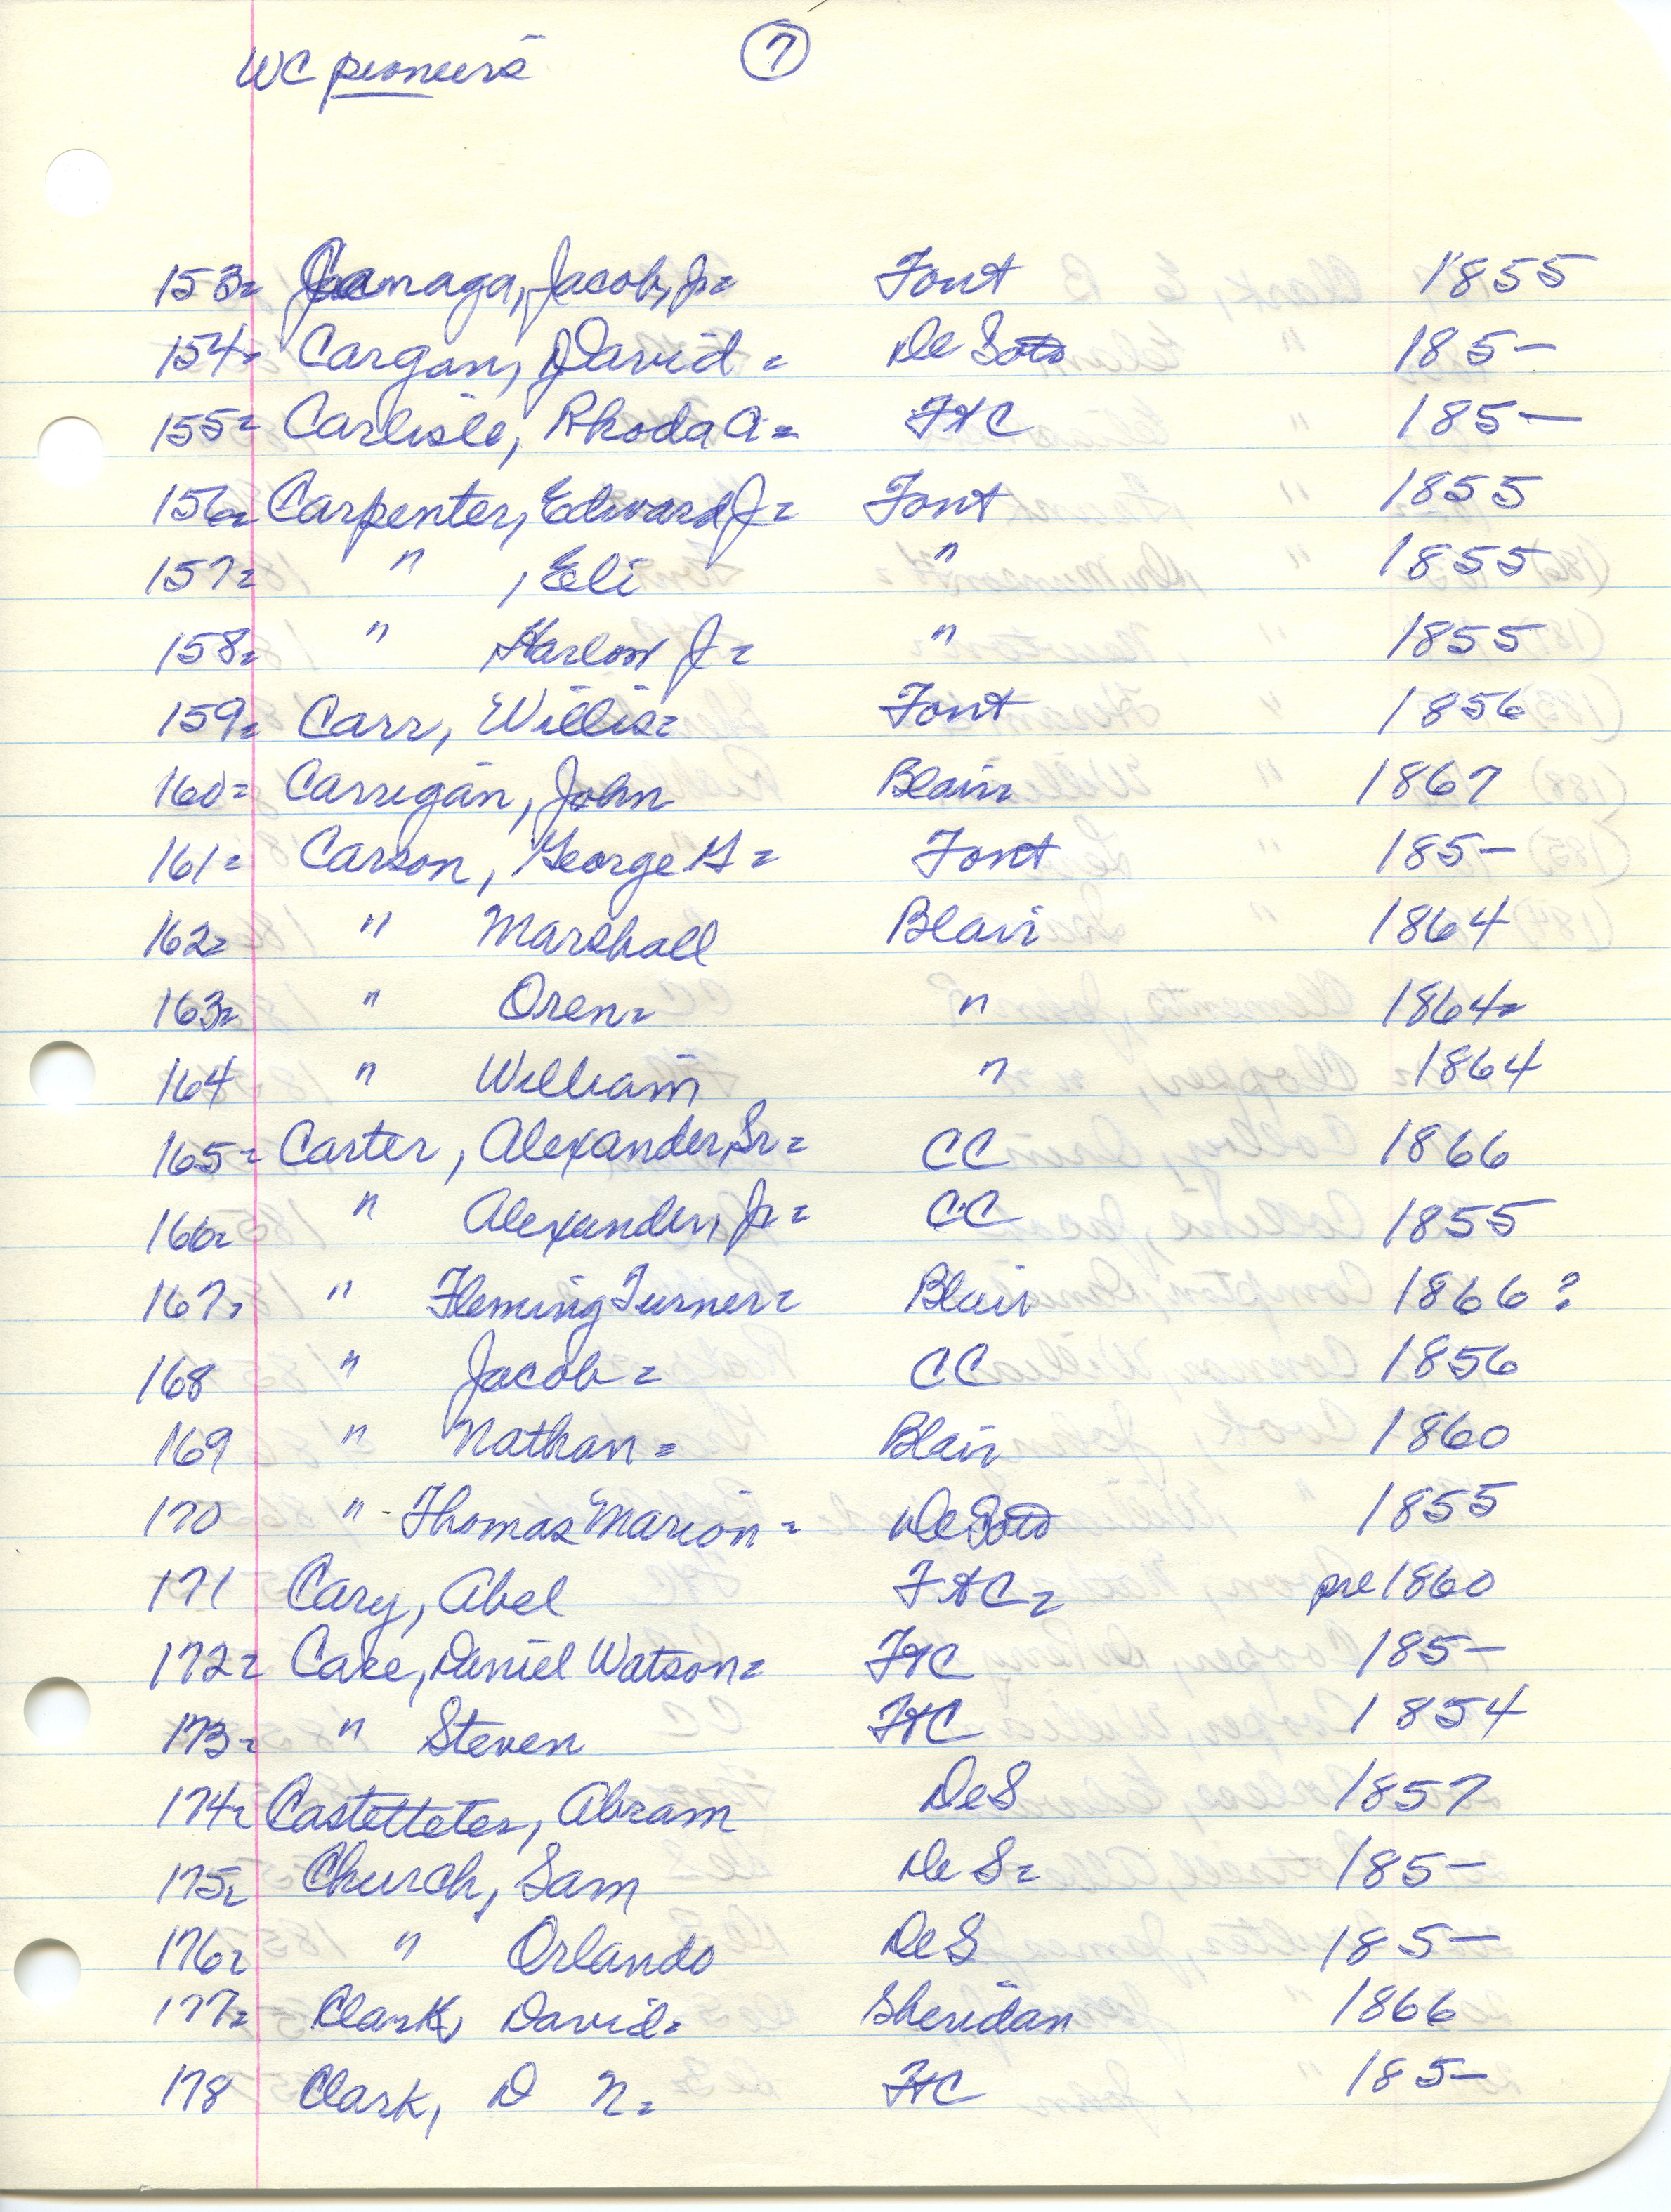 WC pioneers 7
153= Canaga, Jacob, Jr= Font 1855
154= Cargan, David = De Soto 185-
155= Carlisle, Rhoda A= FtC 185-
156= Carpenter, Edward J= Font 1855
157= " , Eli " 1855
158= " Harlow J= " 1855
159= Carr, Willis= Font 1856
160= Carrigan, John Blair= 1867
161= Carson, George G= Font 185-
162= " Marshall Blair 1864
163= " Oren= " 1864=
164 " William " 1864
165= Carter, Alexander, Sr= CC 1866
166= " Alexander, Jr= CC 1855
167= " Fleming Turner= Blair 1866?
168 " Jacob= CC 1856
169 " Nathan= Blair 1860
170 " - Thomas Marion= DeSoto 1855
171 Cary, Abel FtC= pre 1860
172= Case, Daniel Watson= FtC 185-
173= " Steven FtC 1854
174= Castetteter, Abram DeS 1857
175= Church, Sam De S= 185-
176= " Orlando DeS 185-
177= Clark, David= Sheridan 1866
178 Clark, D N= FtC 185-